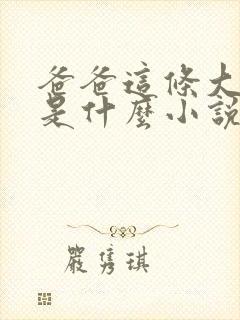 爸爸這條大
是什麼小說
嚴雋琪